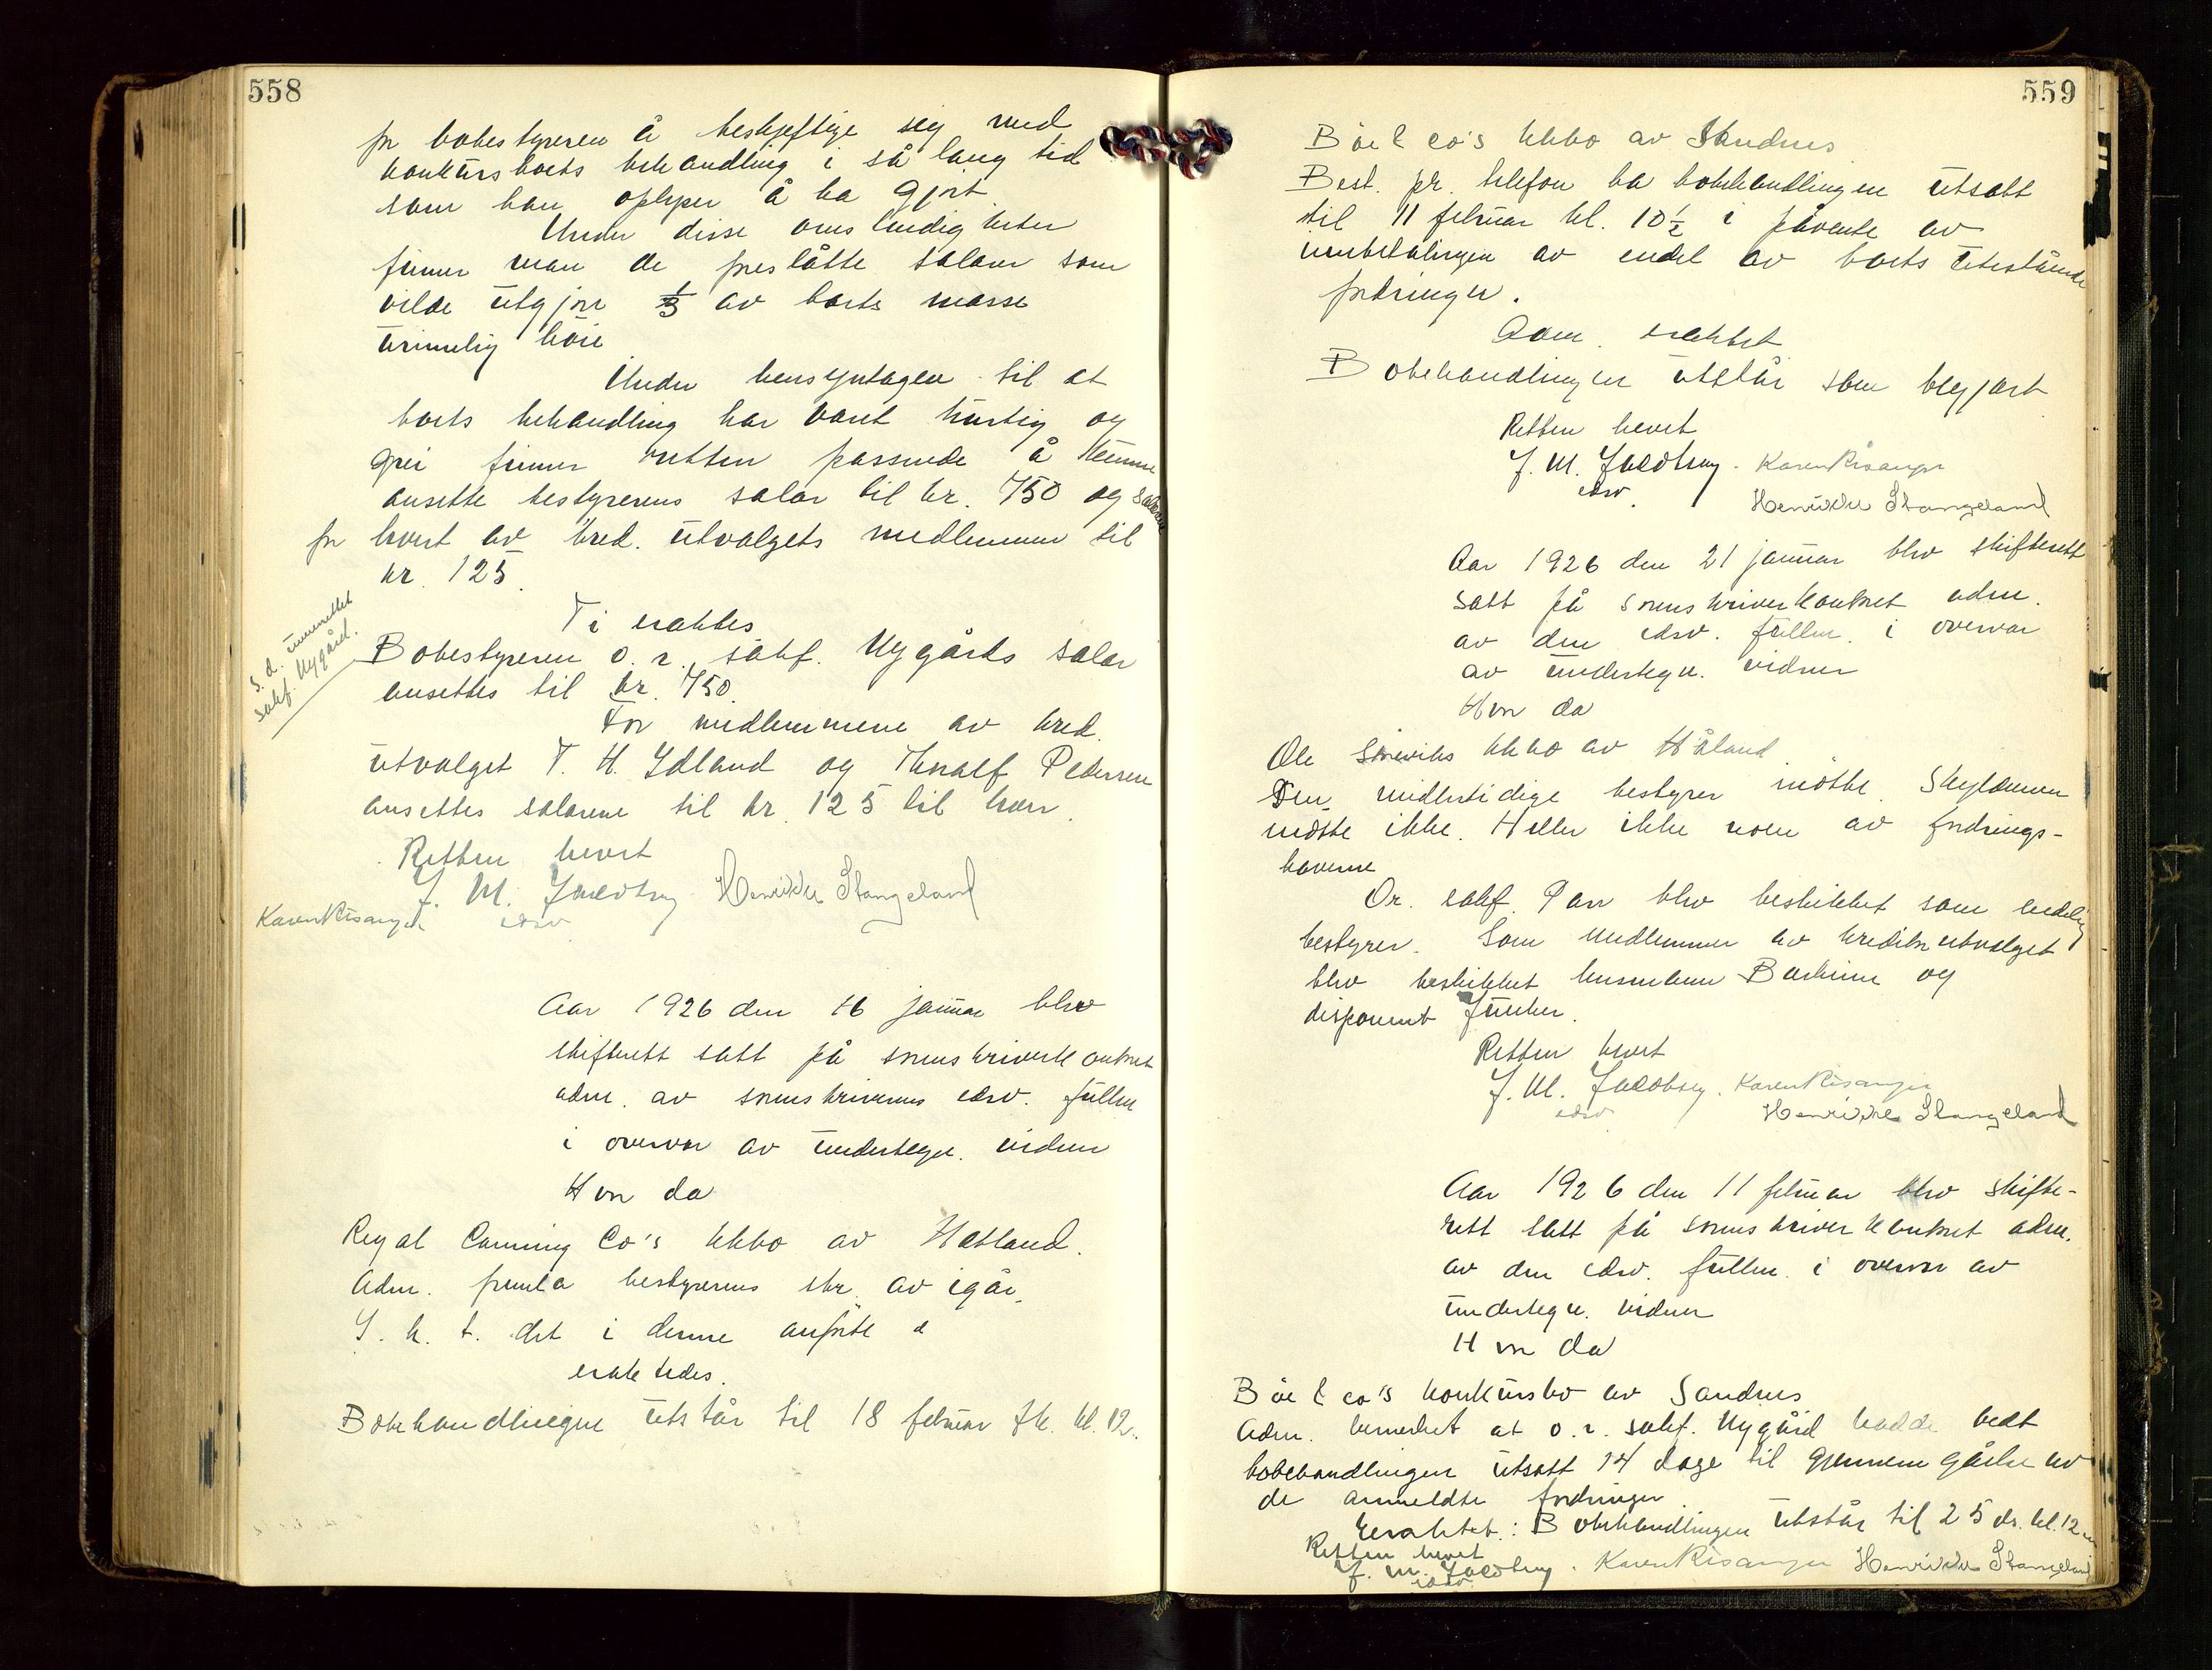 558
for bobestyreren å beskjeftige sig med
konkursboets behandling i så lang tid
som han oplyser å ha gjort
Under disse omstendigheter
finner man de foreslåtte salarer som
vilde utgjøre 1/3 av boets masse
urimelig høie
Under hensyntagen til at
boets behandling har været hurtig og
grei finner retten passende å kunne
ansette bestyrerens salar til kr. 750 og salær
for hvert av kred. utvalgets medlemmer til
kr. 125.
Ti eraktes
S. d. underrettet
sakf. Nygård.
Bobestyreren o. r. sakf. Nygårds salar
ansettes til kr. 750.
For medlemmene av kred.
utvalget T. H. Idland og Thoralf Pedersen
ansettes salarene til kr. 125 til hver.
Retten hevet
J. M. Jacobsen Henrikke Stangeland
Karen Risanger edsv
Aar 1926 den 16 januar blev
skifterett satt på sorenskriverkontoret
adm. av sorenskriverens edsv. fullm
i overvær av undertegn. vidner
Hvor da
Royal Canning Co's kkbo av Hetland.
Adm. fremla bestyrerens skr. av igår.
I h. t. det i denne anførte
eraktedes.
Bobehandlingen utstår til 18 februar fk. kl. 12.
559
Böe & co's kkbo av Sandnes
Best. pr. telefon ba bobehandlingen utsatt
til 11 februar kl. 10 1/2 i påvente av
innbetalingen av endel av boets utestående
fordringer.
Adm. eraktet
Bobehandlingen utstår som begjært
Retten hevet
J. M. Jacobsen. Karen Risanger
edsv. Henrikke Stangeland
Aar 1926 den 21 januar blev skifterett
satt på sorenskriverkontoret adm.
av den edsv. fullm. i overvær
av undertegn. vidner
Hvor da
Ole Søreviks kkbo av Håland
Den midlertidige bestyrer møtte. Skyldneren
møtte ikke. Heller ikke noen av fordrings-
haverne
Or. sakf. Parr blev beskikket som endelig
bestyrer. Som medlemmer av kreditorutvalget
blev beskikket Barheim og
disponent Juuker.
Retten hevet
J. M. Jacobsen. Karen Risanger
edsv. Henrikke Stangeland
Aar 1926 den 11 februar blev skifte-
rett satt på sorenskriverkontoret adm.
av den edsv. fullm. i overvær av
undertegn. vidner
Hvor da
Böe & co's konkursbo av Sandnes
Adm. bemerket at o. r. sakf. Nygård hadde bedt
bobehandlingen utsatt 14 dage til gjennemgåelse av
de anmeldte fordringer.
Eraktet: Bobehandlingen utstår til 25 ds. kl. 12
Retten hevet
J. M. Jacobsen. Karen Risanger Henrikke Stangeland
edsv